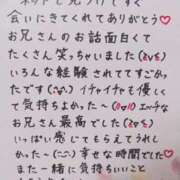 会いにきてくれてありがとう♡
お兄さんのお話面白くて
たくさん笑っちゃいました(≧∇≦)
いろんな経験されててすごか
ったです(∵) イチャイチャも優し
くて気持ちよかった(∵) エッチな
お兄さん最高でした(≧∇≦)
いっぱい感じてもらえてうれし
かった〜(∵) 幸せな時間でした♡
また一緒に気持ちいいこと